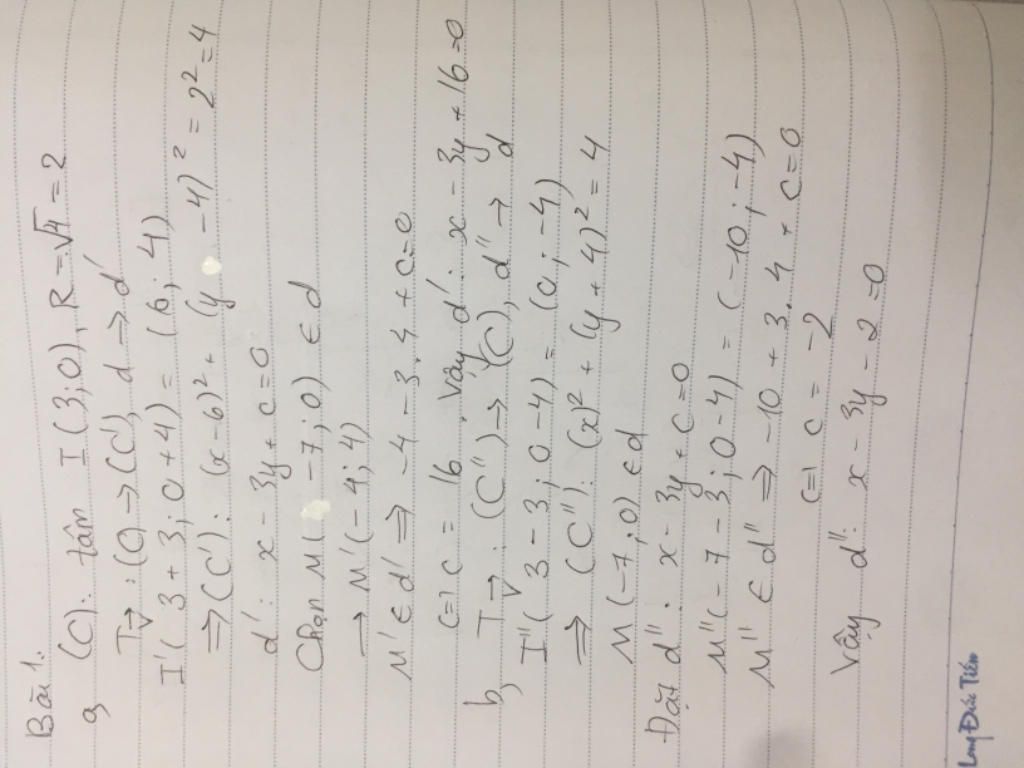 Bài 1.
a, (C): tâm I(3;0), R = √4 = 2
Tv⃗ : (C) → (C'), d → d'
I'(3+3; 0+4) = (6; 4)
⇒ (C'): (x-6)² + (y-4)² = 2² = 4
d': x - 3y + c = 0
Chọn M(-7; 0) ∈ d
→ M'(-4; 4)
M' ∈ d' ⇒ -4 - 3.4 + c = 0
⇔ c = 16. Vậy d': x - 3y + 16 = 0
b, Tv⃗ : (C'') → (C), d'' → d
I''(3-3; 0-4) = (0; -4)
⇒ (C''): (x)² + (y+4)² = 4
M(-7; 0) ∈ d
Đặt d'': x - 3y + c = 0
M''(-7-3; 0-4) = (-10; -4)
M'' ∈ d'' ⇒ -10 + 3.4 + c = 0
⇔ c = -2
Vậy d'': x - 3y - 2 = 0
Long Đức Tiến